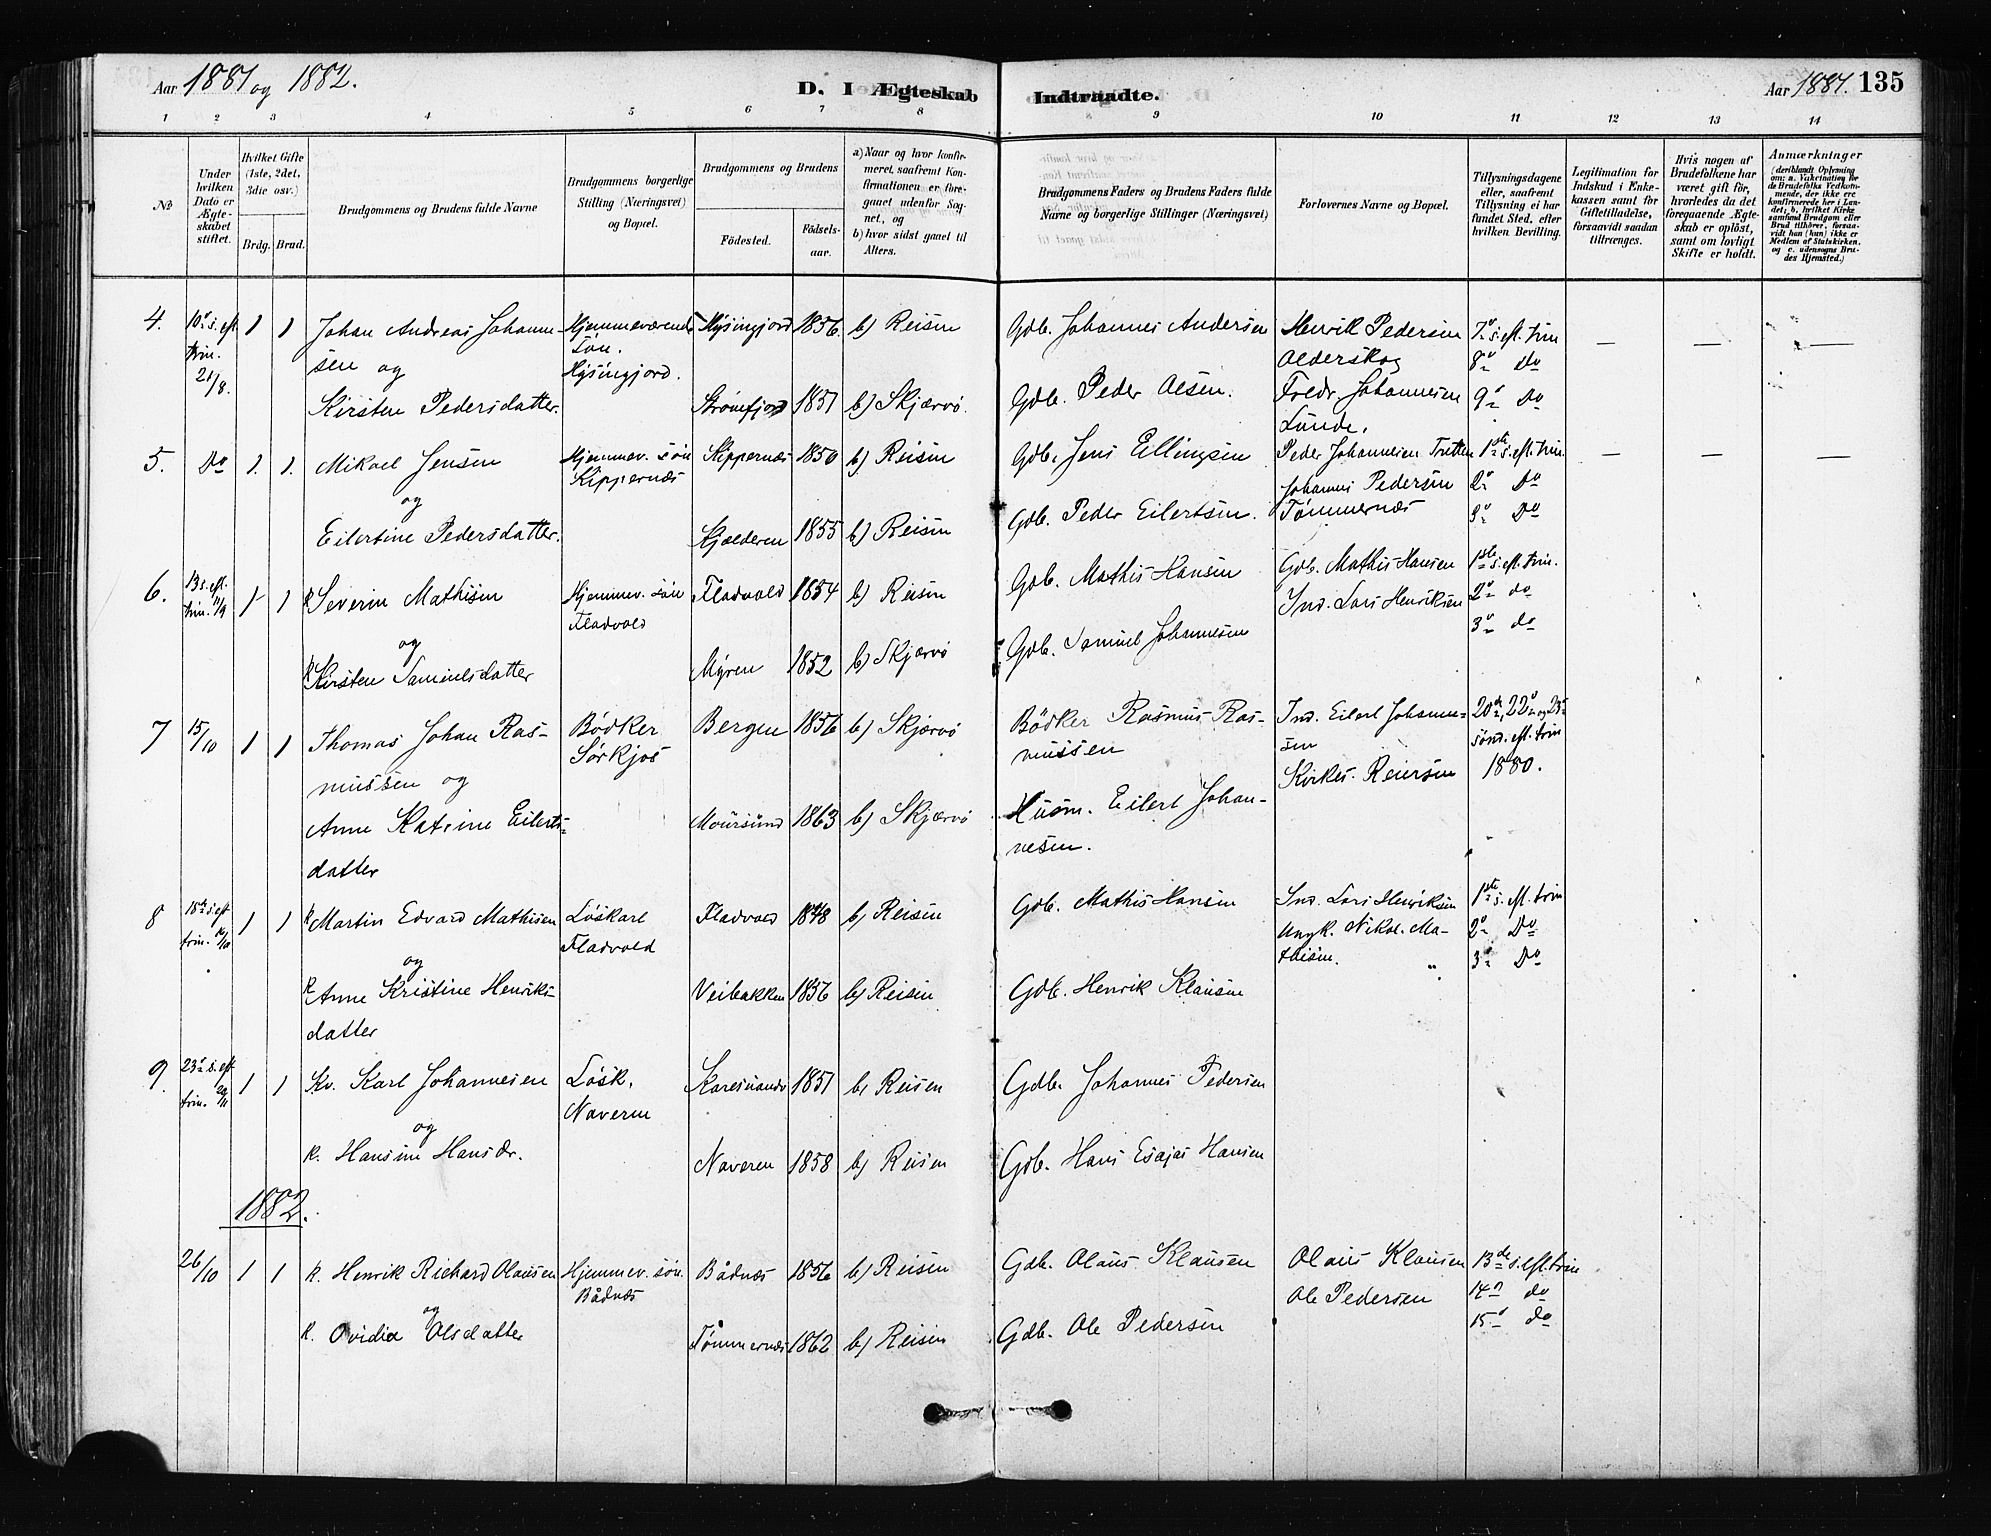 Aar 1881 og 1882.
D. I Ægteskab Indtraadte.
Aar 1881. 135
1 2 3 4 5 6 7 8 8 9 10 11 12 13 14
№
Under hvilken Dato er Ægteskabet stiftet.
Hvilket Gifte (1ste, 2det, 3die osv.)
Brdg. Brud.
Brudgommens og Brudens fulde Navne
Brudgommens borgerlige Stilling (Næringsvei) og Bopæl.
Brudgommens og Brudens
Födested.
Födsels-aar.
a) Naar og hvor konfirmeret, saafremt Konfirmationen er foregaaet udenfor Sognet, og
b) hvor sidst gaaet til Alters.
Brudgommens Faders og Brudens Faders fulde Navne og borgerlige Stillinger (Næringsvei)
Forlovernes Navne og Bopæl.
Tillysningsdagene eller, saafremt Tillysning ei har fundet Sted, efter hvilken Bevilling.
Legitimation for Indskud i Enkekassen samt for Giftetilladelse, forsaavidt saadan tiltrænges.
Hvis nogen af Brudefolkene har været gift för, hvorledes da det foregaaende Ægteskab er oplöst, samt om lovligt Skifte er holdt.
Anmærkninger
(deriblandt Oplysning om: a. Vakcination for de Brudefolks Vedkommende, der ikke ere konfirmerede her i Landet; b. hvilket Kirkesamfund Brudgom eller Brud tilhörer, forsaavidt han (hun) ikke er Medlem af Statskirken, og c. udensogns Brudes Hjemsted.)
4. 10de s. eft. 1 1 Johan Andreas Johanne- Hjemmeværende Hysingjord 1856. b) Reisen Gdb. Johannes Andersen Henrik Pedersen 7de s. eft. trin — — —
trin. sen og Søn. Olderskog 8de Do
21/8. Hysingjord.
Kirsten Pedersdatter. Strømfjord 1851 b) Skjærvö. Gdb. Peder Olsen. Fredr. Johannesen 9de Do
Lunde.
5. Do 1. 1. Mikael Jensen Hjemmev. søn Kippernæs 1850 b) Reisen Gdb. Jens Ellingsen Peder Johannesen Tretten 1ste s. eft. trin. — — —
og Kippernæs Johannes Pedersen 2de Do
Eilertine Pedersdatter. Kjelderen 1855 b) Reisen Gdb. Peder Eilertsen. Tømmernæs 3de Do
6. 13 s. eft. 1 1 k Severin Mathisen Hjemmev. søn Fladvold 1854 b) Reisen Gdb. Mathis Hansen Gdb. Mathis Hansen 1ste s. eft. trin.
trin. 11/9 og Fladvold Ind. Lars Henriksen 2de do
k Kirsten Samuelsdatter Myren 1852 b) Skjærvö Gdb. Samuel Johannesen 3de do
7 15/10 1 1 Thomas Johan Ras- Bödker Bergen 1856 b) Skjærvö Bödker Rasmus Ras- Ind. Eilert Johanne- 20de, 22de og 23de
mussen og Sørkjos mussen sen sønd. eft. trin
Kirkes. Reiersen 1880.
Anne Katrine Eilerts- Moursund 1863 b) Skjærvö Husm. Eilert Johan-
datter nesen.
8 18de s. eft 1 1 k Martin Edvard Mathisen Löskarl Fladvold 1848 b) Reisen Gdb. Mathis Hansen Ind. Lars Henriksen 1ste s. eft. trin
trin. 16/10 og Fladvold Ungk. Nikol. Ma- 2de Do
thisen. 3de Do
k Anne Kristine Henriks- Veibakken 1856 b) Reisen Gdb. Henrik Klausen
datter
9 23de s. eft 1 1 Kv. Karl Johannesen Lösk. Karesuando 1851 b) Reisen Gdb. Johannes Pedersen
trin. 20/11 og Naveren
k. Hansine Hansdr. Naveren 1858 b) Reisen Gdb. Hans Esajas Hansen
1882.
26/10 1 1 k. Henrik Richard Olausen Hjemmev. søn Bådnæs 1856 b) Reisen Gdb. Olaus Klausen Olaus Klausen 13de s. eft. trin
og Bådnæs Ole Pedersen 14de do
k. Ovidia Olsdatter Tømmernæs 1862 b) Reisen Gdb. Ole Pedersen 15de do